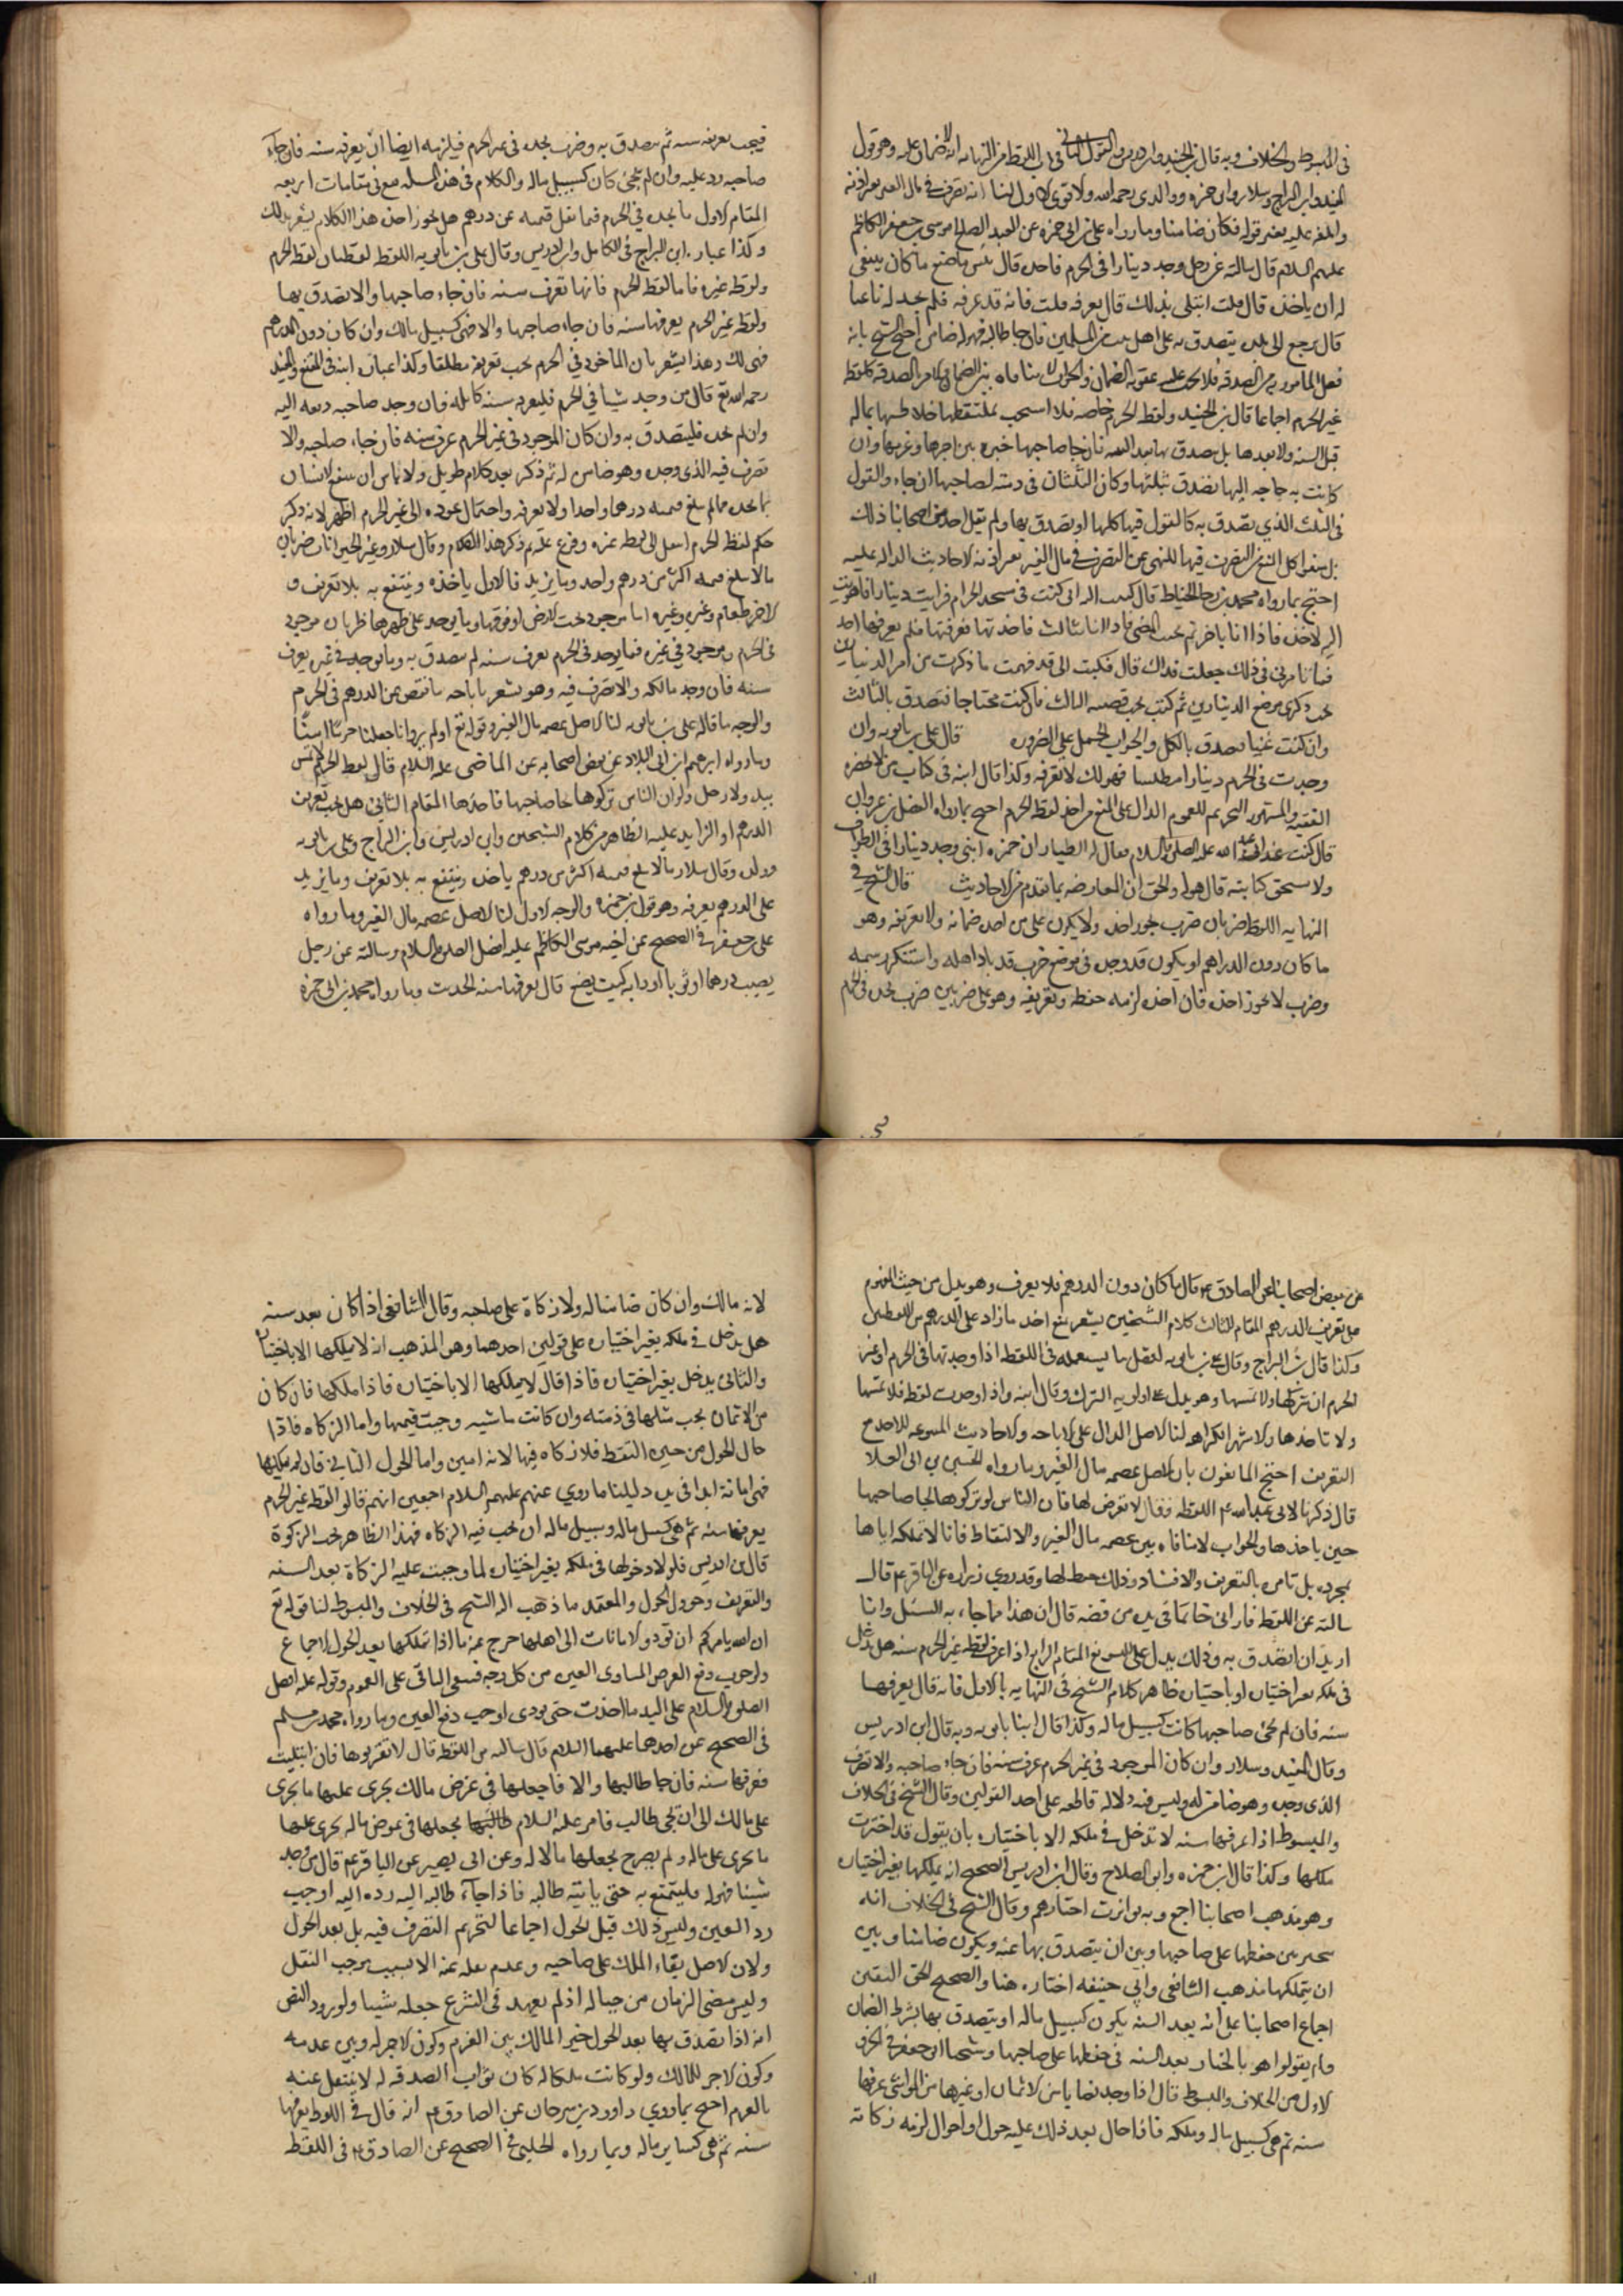 في المبسوط والخلاف وبه قال ابن الجنيد وابن ادريس والقول الثاني في باب اللقطة من النهاية انه لا ضمان عليه وهو قول
المفيد وابن البراج وسلار وابن حمزه ووالدي رحمه الله ولا قوى الاول لنا انه تصرف في مال الغير بغير اذنه
عليه فكان ضامنا وما رواه علي بن ابي حمزه عن العبد الصالح موسى بن جعفر الكاظم
عليهم السلام قال سالته عن رجل وجد دينارا في الحرم فاخذه قال بئس ما صنع ما كان ينبغي
له ان ياخذه قال قلت ابتلى بذلك قال يعرفه قلت فانه قد عرفه فلم يجد له باغيا
قال يرجع الى بلده يتصدق به على اهل بيت من المسلمين فان جا طالبه فهو له ضامن احتج الشيخ بانه
فعل المامور به من الصدقه فلا يجب عليه عقوبه الضمان والجواب لا منافاه بين الضمان والامر بالصدقه كلقطه
غير الحرم اجماعا قال ابن الجنيد ولقطه الحرم خاصه فلا استحب لملتقطها خلاطها بماله
قبل السنه ولا بعدها بل يتصدق بها بعد السنه فان جا صاحبها خيره بين اجرها وغرمها وان
كانت به حاجه اليها تصدق بثلثها وكان الثلثان في ذمته لصاحبها ان جاء والقول
في الثلث الذي يتصدق به كالقول فيها كلها لو تصدق بها ولم يقل احد من اصحابنا ذلك
بل منعوا كل المنع من التصرف فيها للنهي عن التصرف في مال الغير بغير اذنه لاحاديث الداله عليه
احتج بما رواه محمد بن رجا الخياط قال كتبت اليه اني كنت في مسجد الحرام فرايت دينارا فاهويت
اليه لاخذه فاذا انا باخر ثم بحثت الحصى فاذا انا بثالث فاخذتها فعرفتها فلم يعرفها احد
فما تامرني في ذلك جعلت فداك قال فكتب الي قد فهمت ما ذكرت من امر الدنانير
ذكرى موضع الدينارين ثم كتب تحت قصه الثالث فان كنت محتاجا فتصدق بالثالث
وان كنت غنيا فتصدق بالكل والجواب الحمل على الضروره قال علي بن بابويه وان
وجدت في الحرم دينارا مطلسا فهو لك لا تعرفه وكذا قال ابنه في كتاب من لا يحضره
الفقيه والمشهور التحريم للعموم الدال على المنع من اخذ لقطه الحرم احتج بما رواه الفضل بن غزوان
قال كنت عند ابي عبد الله عليه الصلوه والسلام فقال له الطيار ان حمزه ابني وجد دينارا في الطواف
كتابته قال هو له والحق ان المعارضه بما تقدم من الاحاديث قال الشيخ في
النهايه اللقطه ضربان ضرب يجوز اخذه ولا يكون على من اخذه ضمانه ولا تعريفه وهو
ما كان دون الدراهم او يكون قد وجده في موضع خرب قد باد اهله واستنكر رسمه
وضرب لا يجوز اخذه فان اخذه لزمه حفظه وتعريفه وهو على ضربين ضرب يجده في الحرم
فيجب تعريفه سنه ثم يتصدق به وضرب يجده في غير الحرم فيلزمه ايضا ان يعرفه سنه فان جاء
صاحبه رد عليه وان لم يجئ كان كسبيل ماله والكلام في هذه المسله يقع في مقامات اربعه
المقام الاول ما يجده في الحرم فيما تقل قيمته عن درهم هل يجوز اخذه هذا الكلام يشعر بذلك
وكذا عباره ابن البراج في الكامل وابن ادريس وقال علي بن بابويه اللقطه لقطتان لقطه الحرم
ولقطه غيره فاما لقطه الحرم فانها تعرف سنه فان جاء صاحبها والا تصدق بها
ولقطه غير الحرم يعرفها سنه فان جاء صاحبها والا فهي كسبيل مالك وان كان دون الدرهم
فهي لك وهذا يشعر بان الماخوذ في الحرم يجب تعريفه مطلقا وكذا عباره ابنه في المقنع والمفيد
رحمه الله تع قال من وجد شيئا في الحرم فليعرفه سنه كامله فان وجد صاحبه دفعه اليه
وان لم يجده فليتصدق به وان كان الموجود في غير الحرم عرف سنه فان جاء صاحبه والا
تصرف فيه الذي وجده وهو ضامن له ثم ذكر بعد كلام طويل ولا باس ان ينتفع الانسان
بما يجده ما لم يبلغ قيمته درهما واحدا ولا يعرفه واحتمال عوده الى غير الحرم اظهر لانه ذكر
حكم لقطه الحرم انتقل الى لقطه غيره وفرع عليه ثم ذكر هذا الكلام وقال سلار وغير الحيوانات ضربان
ما لا يبلغ قيمته اكثر من درهم واحد وما يزيد فالاول ياخذه وينتفع به بلا تعريف و
الاخر طعام وغيره وغيره اما موجود تحت الارض او فوقها وما يوجد على ظهرها ضربان موجود
في الحرم وموجود في غيره فما يوجد في الحرم يعرف سنه ثم يتصدق به وما يوجد في غيره يعرف
سنه فان وجد مالكه والا تصرف فيه وهو يشعر باباحه ما نقص عن الدرهم في الحرم
والوجه ما قاله علي بن بابويه لنا الاصل عصمه مال الغير وقوله تع اولم يروا انا جعلنا حرما امنا
وما رواه ابرهيم بن ابي البلاد عن بعض اصحابه عن الماضي عليه السلام قال لقطه الحرم لا تمس
بيد ولا رجل ولو ان الناس تركوها لجا صاحبها فاخذها المقام الثاني هل يجب تعريف
الدرهم او الزايد عليه الظاهر من كلام الشيخين وابن ادريس وابن البراج وعلي بن بابويه
وولده وقال سلار ما لا يبلغ قيمته اكثر من درهم ياخذه وينتفع به بلا تعريف وما يزيد
على الدرهم يعرفه وهو قول ابن حمزه والوجه الاول لنا الاصل عصمه مال الغير وما رواه
علي بن جعفر في الصحيح عن اخيه موسى الكاظم عليه افضل الصلوه والسلام وسالته عن رجل
يصيب درهما او ثوبا او دابه كيف يصنع قال يعرفها سنه الحديث وما رواه محمد بن ابي حمزه
عن بعض اصحابنا عن الصادق ع قال ما كان دون الدرهم فلا يعرف وهو يدل من حيث المفهوم
على تعريف الدرهم المقام الثالث كلام الشيخين يشعر بمنع اخذ ما زاد على الدرهم من اللقطتين
وكذا قال ابن البراج وقال علي بن بابويه افضل ما يستعمله في اللقطه اذا وجدتها في الحرم او غير
الحرم ان تتركها ولا تمسها وهو يدل على اولويه الترك وقال ابنه واذا وجدت لقطه فلا تمسها
ولا تاخذها والاشهر الكراهه لنا الاصل الدال على الاباحه والاحاديث المسوغه للاخذ مع
التعريف احتج المانعون بان الاصل عصمه مال الغير وما رواه الحسين بن ابي العلا
قال ذكرنا لابي عبد الله ع اللقطه فقال لا تعرض لها فان الناس لو تركوها لجا صاحبها
حين ياخذها والجواب لا منافاه بين عصمه مال الغير والالتقاط فانا لا نملكه اياها
بمجرده بل نامره بالتعريف والانشاد وذلك حفظ لها وقد روى زراره عن الباقر ع قال
سالته عن اللقطه فاراني خاتما في يده من فضه قال ان هذا مما جاء به السيل وانا
اريد ان اتصدق به وذلك يدل على التسويغ المقام الرابع اذا عرف لقطه غير الحرم سنه هل تدخل
في ملكه بغير اختياره او باختياره ظاهر كلام الشيخ في النهايه بالاول فانه قال يعرفها
سنه فان لم يجئ صاحبها كانت كسبيل ماله وكذا قال ابنا بابويه وبه قال ابن ادريس
وقال المفيد وسلار وان كان الموجود في غير الحرم عرف سنه فان جاء صاحبه والا تصرف
الذي وجده وهو ضامن له وليس فيه دلاله قاطعه على احد القولين وقال الشيخ في الخلاف
والمبسوط اذا عرفها سنه لا تدخل في ملكه الا باختياره بان يقول قد اخترت
ملكها وكذا قال ابن حمزه وابو الصلاح وقال ابن ادريس الصحيح انه يملكها بغير اختياره
وهو مذهب اصحابنا اجمع وبه تواترت اخبارهم وقال الشيخ في الخلاف انه
مخير بين حفظها على صاحبها وبين ان يتصدق بها عنه ويكون ضامنا وبين
ان يتملكها مذهب الشافعي وابي حنيفه اختاره هنا والصحيح الحق اليقين
اجماع اصحابنا على انه بعد السنه يكون كسبيل ماله او يتصدق بها بشرط الضمان
ولم يقولوا هو بالخيار بعد السنه في حفظها على صاحبها وشيخنا ابو جعفر في الجزء
الاول من الخلاف والمبسوط قال اذا وجد نصابا من الاثمان او غيرها من المواشي عرفها
سنه ثم هي كسبيل ماله وملكه فاذا حال بعد ذلك عليه حول او احوال لزمه زكاته
لانه مالك وان كان ضامنا له ولا زكاة على صاحبه وقال الشافعي اذا كان بعد سنه
هل يدخل في ملكه بغير اختياره على قولين احدهما وهو المذهب انه لا يملكها الا باختياره
والثاني يدخل بغير اختياره فاذا قال لا يملكها الا باختياره فاذا ملكها فان كان
من الاثمان يجب مثلها في ذمته وان كانت ماشيه وجبت قيمتها واما الزكاه فاذا
حال الحول من حين التقط فلا زكاه فيها لانه امين واما الحول الثاني فان لم يملكها
فهي امانه ابدا في يده دليلنا ما روي عنهم عليهم السلام اجمعين انهم قالوا لقطه غير الحرم
يعرفها سنه ثم هي كسبيل ماله وسبيل ماله ان يجب فيه الزكاه فهذا الظاهر يجب الزكوة
قال ابن ادريس فلولا دخولها في ملكه بغير اختياره لما وجبت عليه الزكاة بعد السنه
والتعريف وحؤول الحول والمعتمد ما ذهب اليه الشيخ في الخلاف والمبسوط لنا قوله تع
ان الله يامركم ان تؤدوا الامانات الى اهلها خرج عنه ما اذا تملكها بعد الحول للاجماع
ولوجوب دفع العوض المساوي للعين من كل وجه فيبقى الباقي على العموم وقوله عليه افضل
الصلوه والسلام على اليد ما اخذت حتى تودى اوجب دفع العين وما رواه محمد بن مسلم
في الصحيح عن احدهما عليهما السلام قال سالته عن اللقطه قال لا تقربوها فان ابتليت
فعرفها سنه فان جا طالبها والا فاجعلها في عرض مالك يجري عليها ما يجري
على مالك الى ان يجئ طالب فامر عليه السلام بجعلها في عرض ماله يجري عليها
ما يجري على ماله ولم يصرح بجعلها مالا له وعن ابي بصير عن الباقر ع قال من وجد
شيئا فهو له فليتمتع به حتى ياتيه طالبه فاذا جاء طالبه اليه رده اليه اوجب
رد العين وليس ذلك قبل الحول اجماعا لتحريم التصرف فيه بل بعد الحول
ولان الاصل بقاء الملك على صاحبه وعدم نقله عنه الا بسبب يوجب النقل
وليس مضي الزمان من جباله اذ لم يعهد في الشرع جعله شيئا ولورود النص
انه اذا تصدق بها بعد الحول خير المالك بين الغرم وكون الاجر له وبين عدمه
وكون الاجر للمالك ولو كانت ملكا له كان ثواب الصدقه له لا ينتقل عنه
بالغرم احتج بما روي داوود بن سرحان عن الصادق ع انه قال في اللقطه يعرفها
سنه ثم هي كساير ماله وبما رواه الحلبي في الصحيح عن الصادق ع في اللقطه